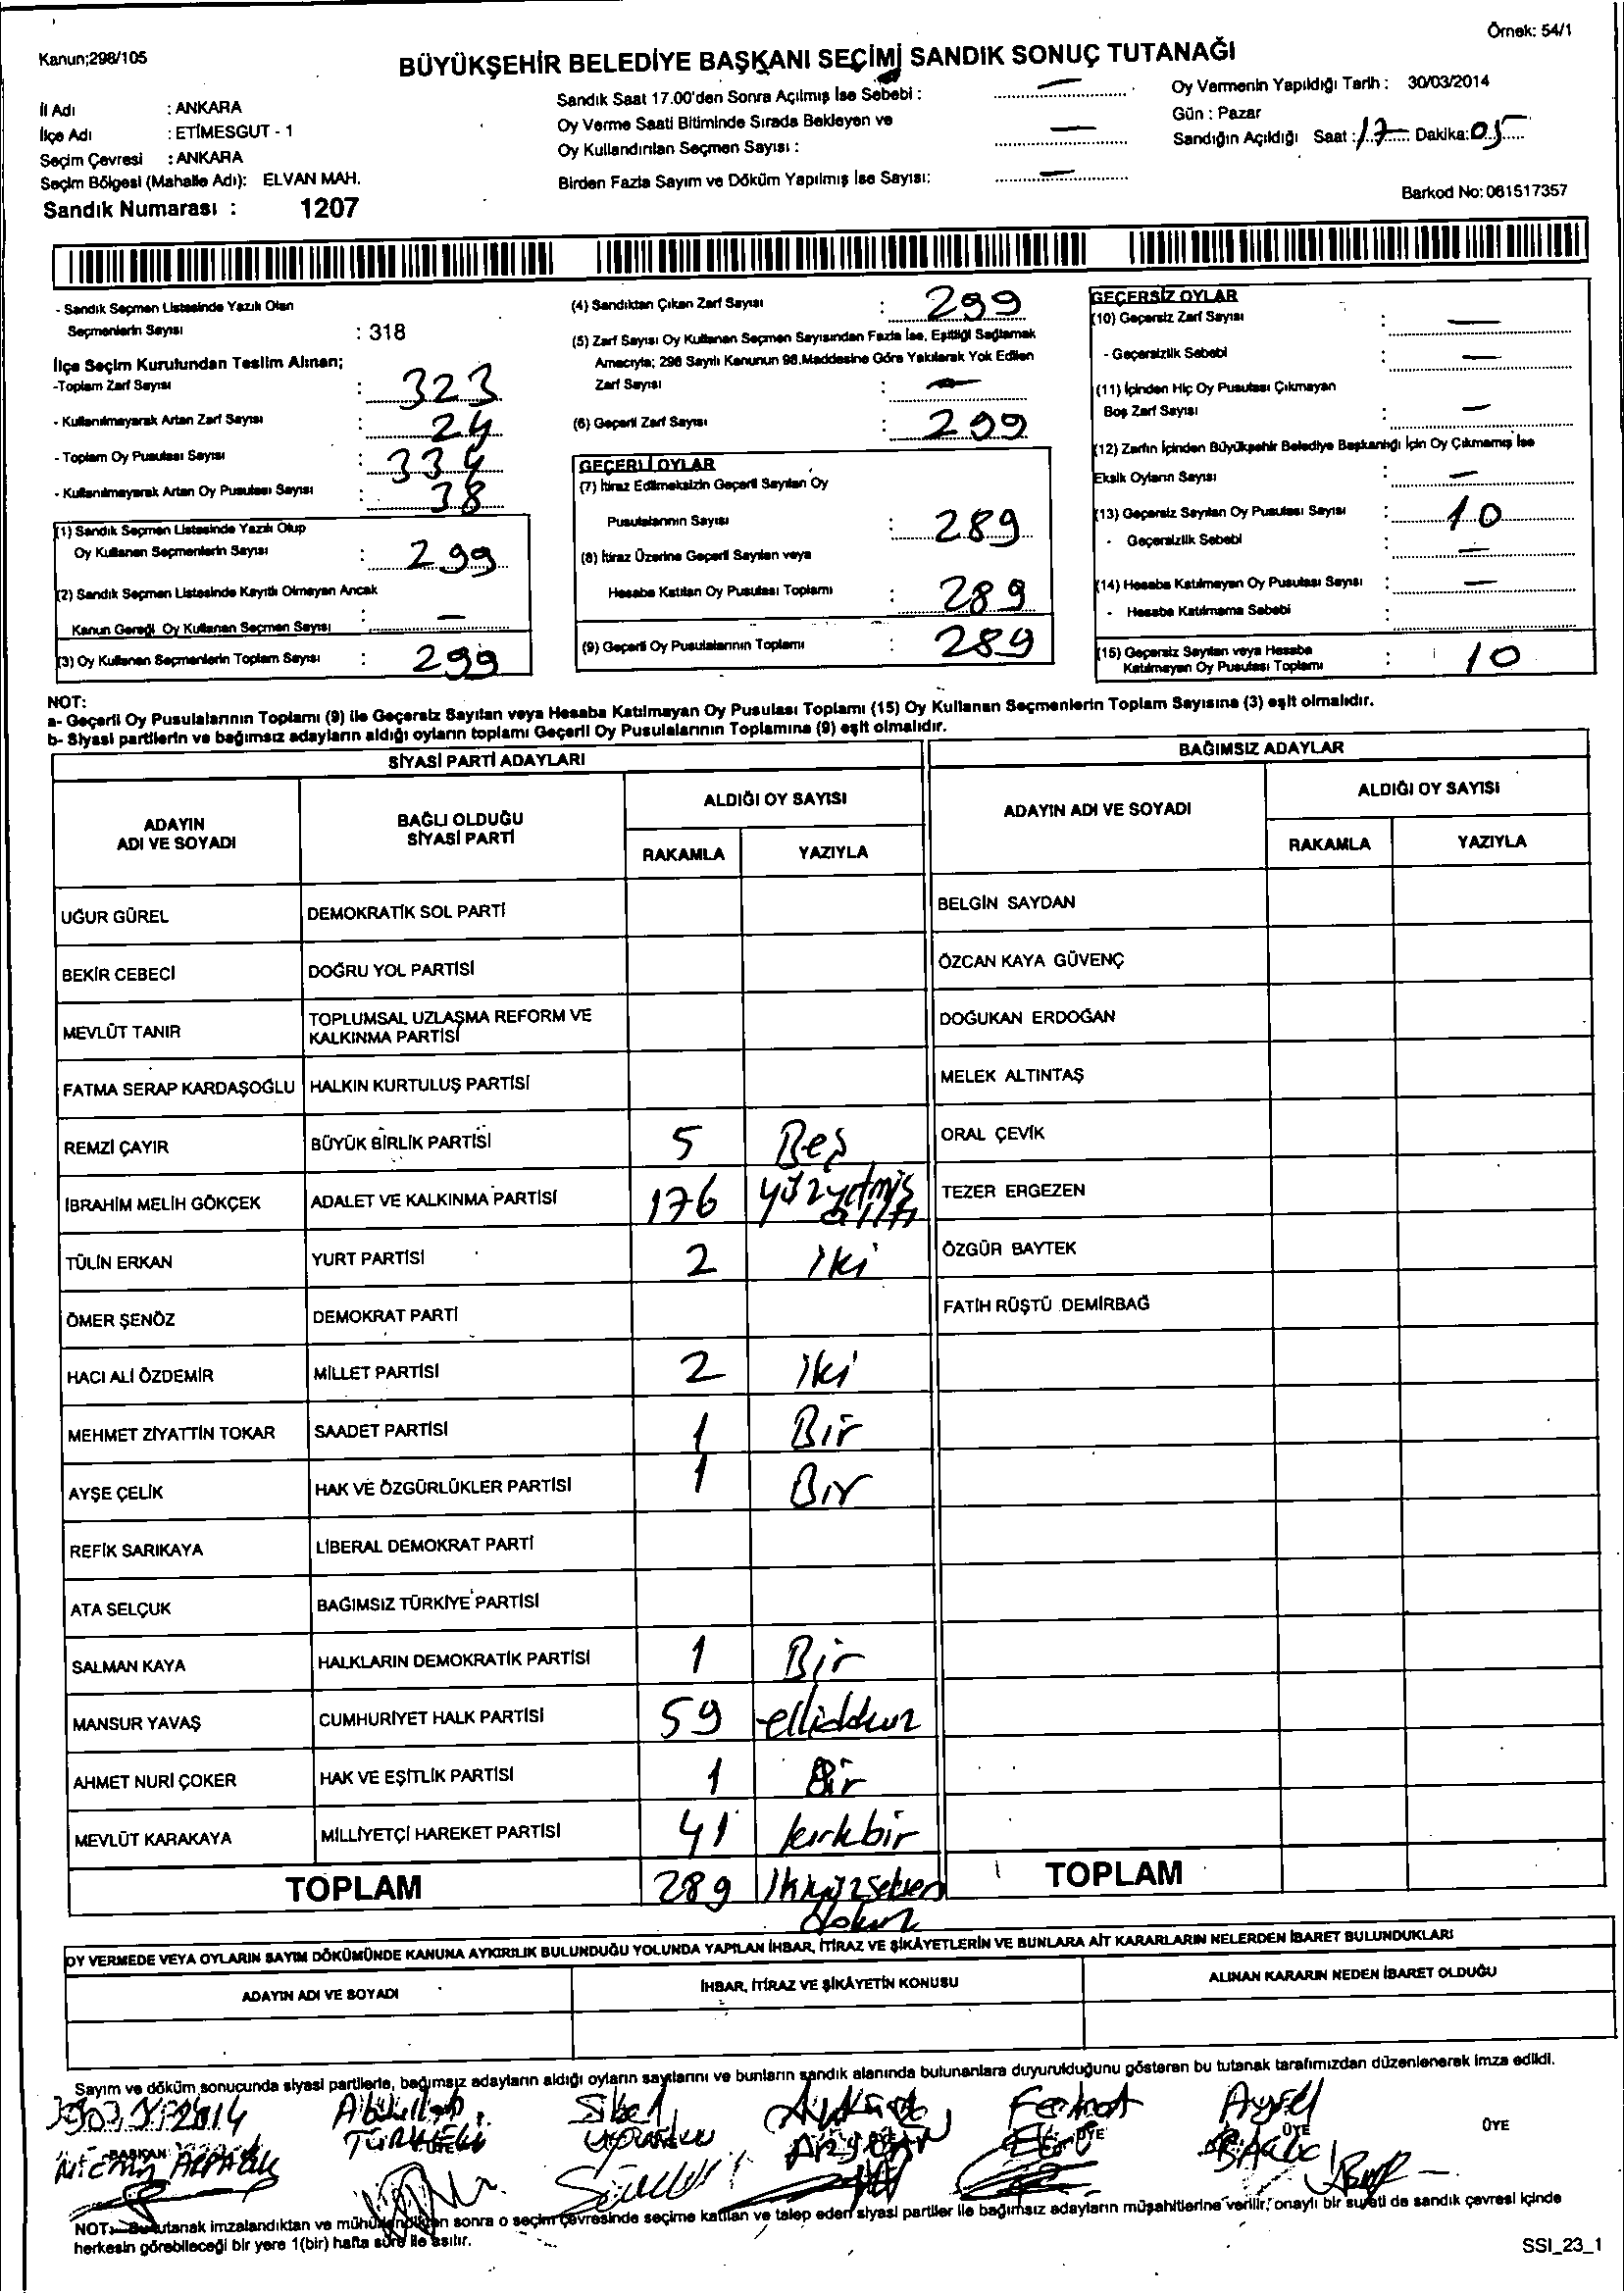 Örnek: 54/1
Kanun;298/105
BÜYÜKŞEHİR BELEDİYE BAŞKANI SEÇİMİ SANDIK SONUÇ TUTANAĞI
İl Adı : ANKARA
İlçe Adı : ETİMESGUT - 1
Seçim Çevresi : ANKARA
Seçim Bölgesi (Mahalle Adı): ELVAN MAH.
Sandık Numarası : 1207
Sandık Saat 17.00'den Sonra Açılmış İse Sebebi : —
Oy Verme Saati Bitiminde Sırada Bekleyen ve
Oy Kullandırılan Seçmen Sayısı : —
Birden Fazla Sayım ve Döküm Yapılmış İse Sayısı: —
Oy Vermenin Yapıldığı Tarih : 30/03/2014
Gün : Pazar
Sandığın Açıldığı Saat : 17 Dakika: 05
Barkod No: 061517357
- Sandık Seçmen Listesinde Yazılı Olan
Seçmenlerin Sayısı : 318
İlçe Seçim Kurulundan Teslim Alınan;
-Toplam Zarf Sayısı : 323
- Kullanılmayarak Artan Zarf Sayısı : 24
- Toplam Oy Pusulası Sayısı : 334
- Kullanılmayarak Artan Oy Pusulası Sayısı : 38
(1) Sandık Seçmen Listesinde Yazılı Olup
Oy Kullanan Seçmenlerin Sayısı : 299
(2) Sandık Seçmen Listesinde Kayıtlı Olmayan Ancak
Kanun Gereği Oy Kullanan Seçmen Sayısı : —
(3) Oy Kullanan Seçmenlerin Toplam Sayısı : 299
(4) Sandıktan Çıkan Zarf Sayısı : 299
(5) Zarf Sayısı Oy Kullanan Seçmen Sayısından Fazla İse, Eşitliği Sağlamak
Amacıyla; 298 Sayılı Kanunun 98.Maddesine Göre Yakılarak Yok Edilen
Zarf Sayısı : —
(6) Geçerli Zarf Sayısı : 299
GEÇERLİ OYLAR
(7) İtiraz Edilmeksizin Geçerli Sayılan Oy
Pusulalarının Sayısı : 289
(8) İtiraz Üzerine Geçerli Sayılan veya
Hesaba Katılan Oy Pusulası Toplamı : 289
(9) Geçerli Oy Pusulalarının Toplamı : 289
GEÇERSİZ OYLAR
(10) Geçersiz Zarf Sayısı : —
- Geçersizlik Sebebi : —
(11) İçinden Hiç Oy Pusulası Çıkmayan
Boş Zarf Sayısı : —
(12) Zarfın İçinden Büyükşehir Belediye Başkanlığı İçin Oy Çıkmamış İse
Eksik Oyların Sayısı : —
(13) Geçersiz Sayılan Oy Pusulası Sayısı : 10
- Geçersizlik Sebebi : —
(14) Hesaba Katılmayan Oy Pusulası Sayısı : —
- Hesaba Katılmama Sebebi :
(15) Geçersiz Sayılan veya Hesaba
Katılmayan Oy Pusulası Toplamı : 10
NOT:
a- Geçerli Oy Pusulalarının Toplamı (9) ile Geçersiz Sayılan veya Hesaba Katılmayan Oy Pusulası Toplamı (15) Oy Kullanan Seçmenlerin Toplam Sayısına (3) eşit olmalıdır.
b- Siyasi partilerin ve bağımsız adayların aldığı oyların toplamı Geçerli Oy Pusulalarının Toplamına (9) eşit olmalıdır.
SİYASİ PARTİ ADAYLARI
ADAYIN ADI VE SOYADI BAĞLI OLDUĞU SİYASİ PARTİ ALDIĞI OY SAYISI
RAKAMLA YAZIYLA
UĞUR GÜREL DEMOKRATİK SOL PARTİ
BEKİR CEBECİ DOĞRU YOL PARTİSİ
MEVLÜT TANIR TOPLUMSAL UZLAŞMA REFORM VE KALKINMA PARTİSİ
FATMA SERAP KARDAŞOĞLU HALKIN KURTULUŞ PARTİSİ
REMZİ ÇAYIR BÜYÜK BİRLİK PARTİSİ 5 Beş
İBRAHİM MELİH GÖKÇEK ADALET VE KALKINMA PARTİSİ 176 yüzyetmiş altı
TÜLİN ERKAN YURT PARTİSİ 2 iki
ÖMER ŞENÖZ DEMOKRAT PARTİ
HACI ALİ ÖZDEMİR MİLLET PARTİSİ 2 iki
MEHMET ZİYATTİN TOKAR SAADET PARTİSİ 1 Bir
AYŞE ÇELİK HAK VE ÖZGÜRLÜKLER PARTİSİ 1 Bir
REFİK SARIKAYA LİBERAL DEMOKRAT PARTİ
ATA SELÇUK BAĞIMSIZ TÜRKİYE PARTİSİ
SALMAN KAYA HALKLARIN DEMOKRATİK PARTİSİ 1 Bir
MANSUR YAVAŞ CUMHURİYET HALK PARTİSİ 59 ellidokuz
AHMET NURİ ÇOKER HAK VE EŞİTLİK PARTİSİ 1 Bir
MEVLÜT KARAKAYA MİLLİYETÇİ HAREKET PARTİSİ 41 kırkbir
TOPLAM 289 ikiyüzseksen dokuz
BAĞIMSIZ ADAYLAR
ADAYIN ADI VE SOYADI ALDIĞI OY SAYISI
RAKAMLA YAZIYLA
BELGİN SAYDAN
ÖZCAN KAYA GÜVENÇ
DOĞUKAN ERDOĞAN
MELEK ALTINTAŞ
ORAL ÇEVİK
TEZER ERGEZEN
ÖZGÜR BAYTEK
FATİH RÜŞTÜ DEMİRBAĞ
TOPLAM
OY VERMEDE VEYA OYLARIN SAYIM DÖKÜMÜNDE KANUNA AYKIRILIK BULUNDUĞU YOLUNDA YAPILAN İHBAR, İTİRAZ VE ŞİKÂYETLERİN VE BUNLARA AİT KARARLARIN NELERDEN İBARET BULUNDUKLARI
ADAYIN ADI VE SOYADI İHBAR, İTİRAZ VE ŞİKÂYETİN KONUSU ALINAN KARARIN NEDEN İBARET OLDUĞU
Sayım ve döküm sonucunda siyasi partilerle, bağımsız adayların aldığı oyların sayılarını ve bunların sandık alanında bulunanlara duyurulduğunu gösteren bu tutanak tarafımızdan düzenlenerek imza edildi.
Abdullah Sibel Aysel
BAŞKAN ÜYE ÜYE ÜYE ÜYE
NOT: Bu tutanak imzalandıktan ve mühürlendikten sonra o seçim çevresinde seçime katılan ve talep eden siyasi partiler ile bağımsız adayların müşahitlerine verilir, onaylı bir sureti de sandık çevresi içinde
herkesin görebileceği bir yere 1(bir) hafta süre ile asılır.
SSI_23_1